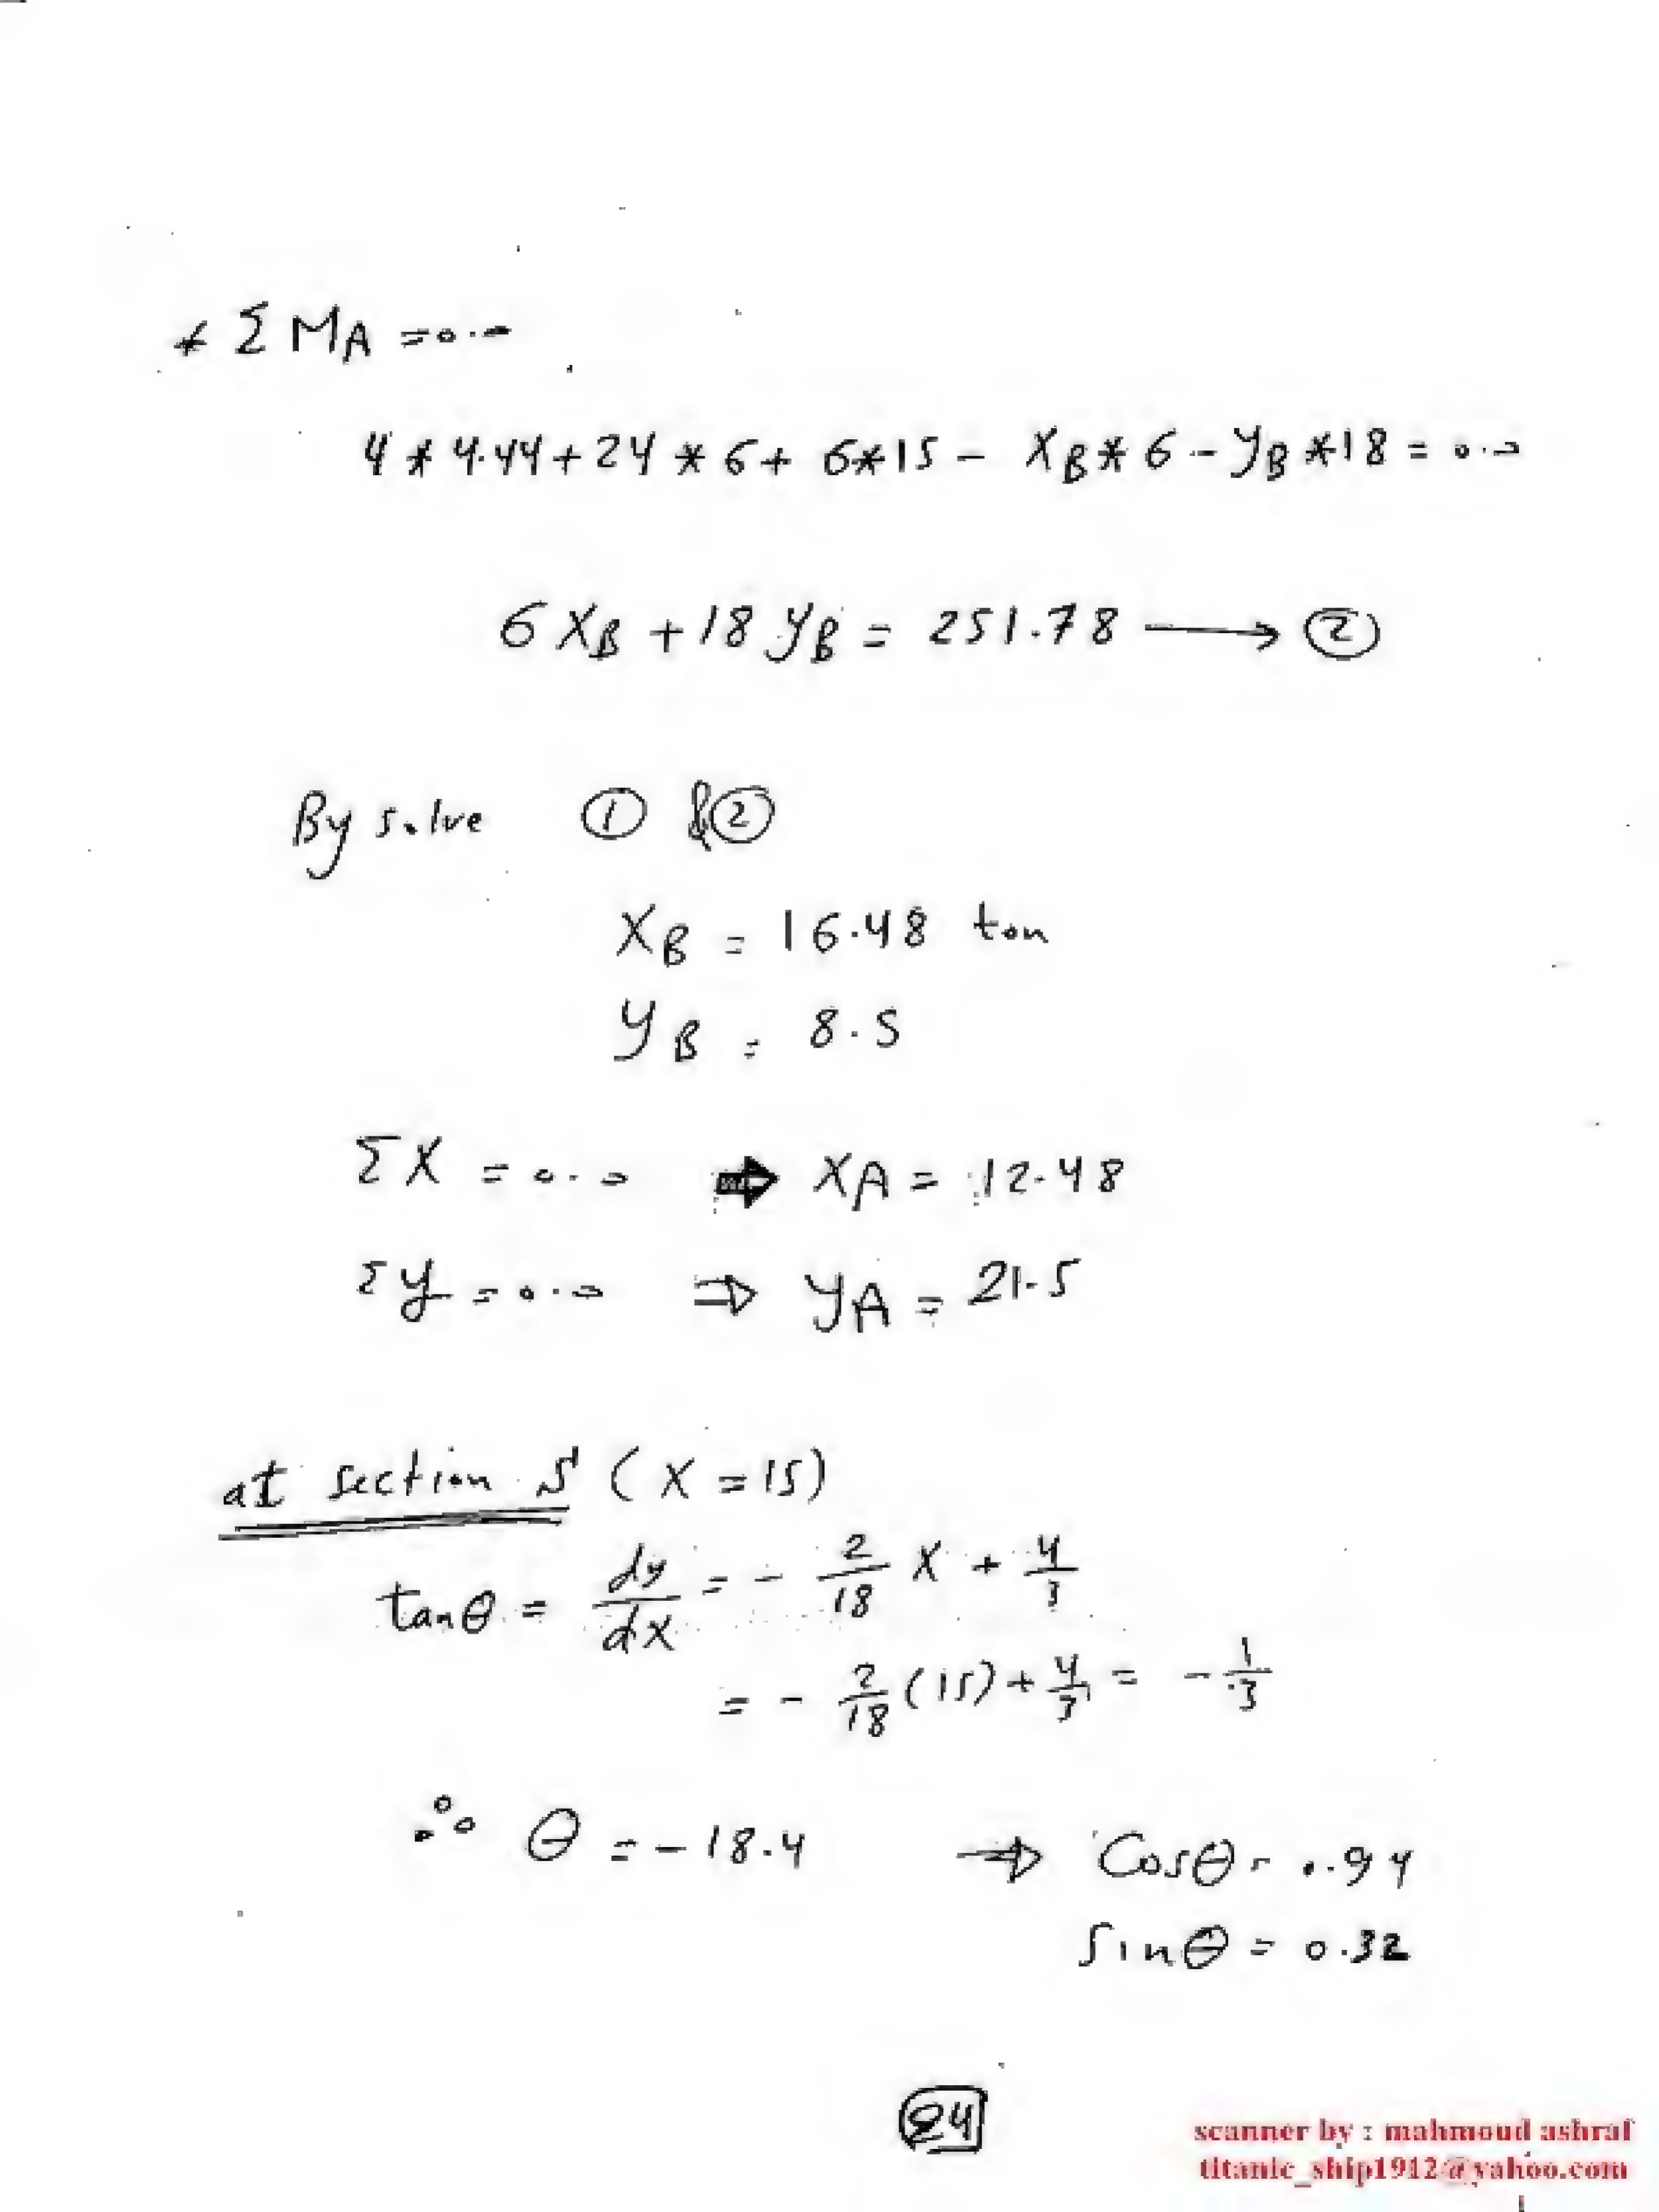 * Σ MA = 0.0
4 * 4.44 + 24 * 6 + 6*15 - XB * 6 - yB * 18 = 0.0
6 XB + 18 yB = 251.78 ⟶ ②
By solve ① & ②
XB = 16.48 ton
yB = 8.5
ΣX = 0.0 ⇒ XA = 12.48
Σy = 0.0 ⇒ yA = 21.5
at section S (X = 15)
tanθ = dy/dx = - 2/18 X + 4/3
= - 2/18 (15) + 4/3 = - 1/3
∴ θ = - 18.4 ⇒ Cosθ = 0.94
Sinθ = 0.32
24
scanner by : mahmoud ashraf
titanic_ship1912@yahoo.com